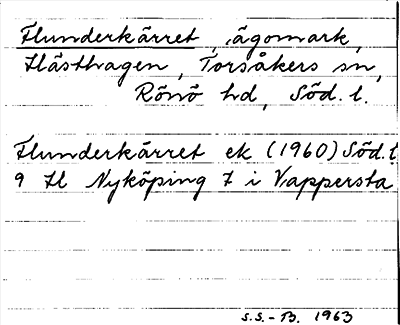 Flunderkärret, ägomark,
Hästhagen, Torsåkers sn,
Rönö hd, Söd. l.
Flunderkärret ek (1960) Söd. l
9 H Nyköping 7 i Vappersta
S.S. - B. 1963